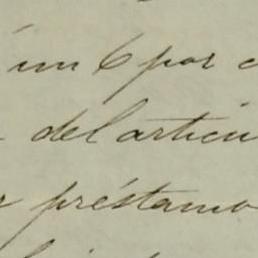 á un 6 por c
del artícu
préstamo